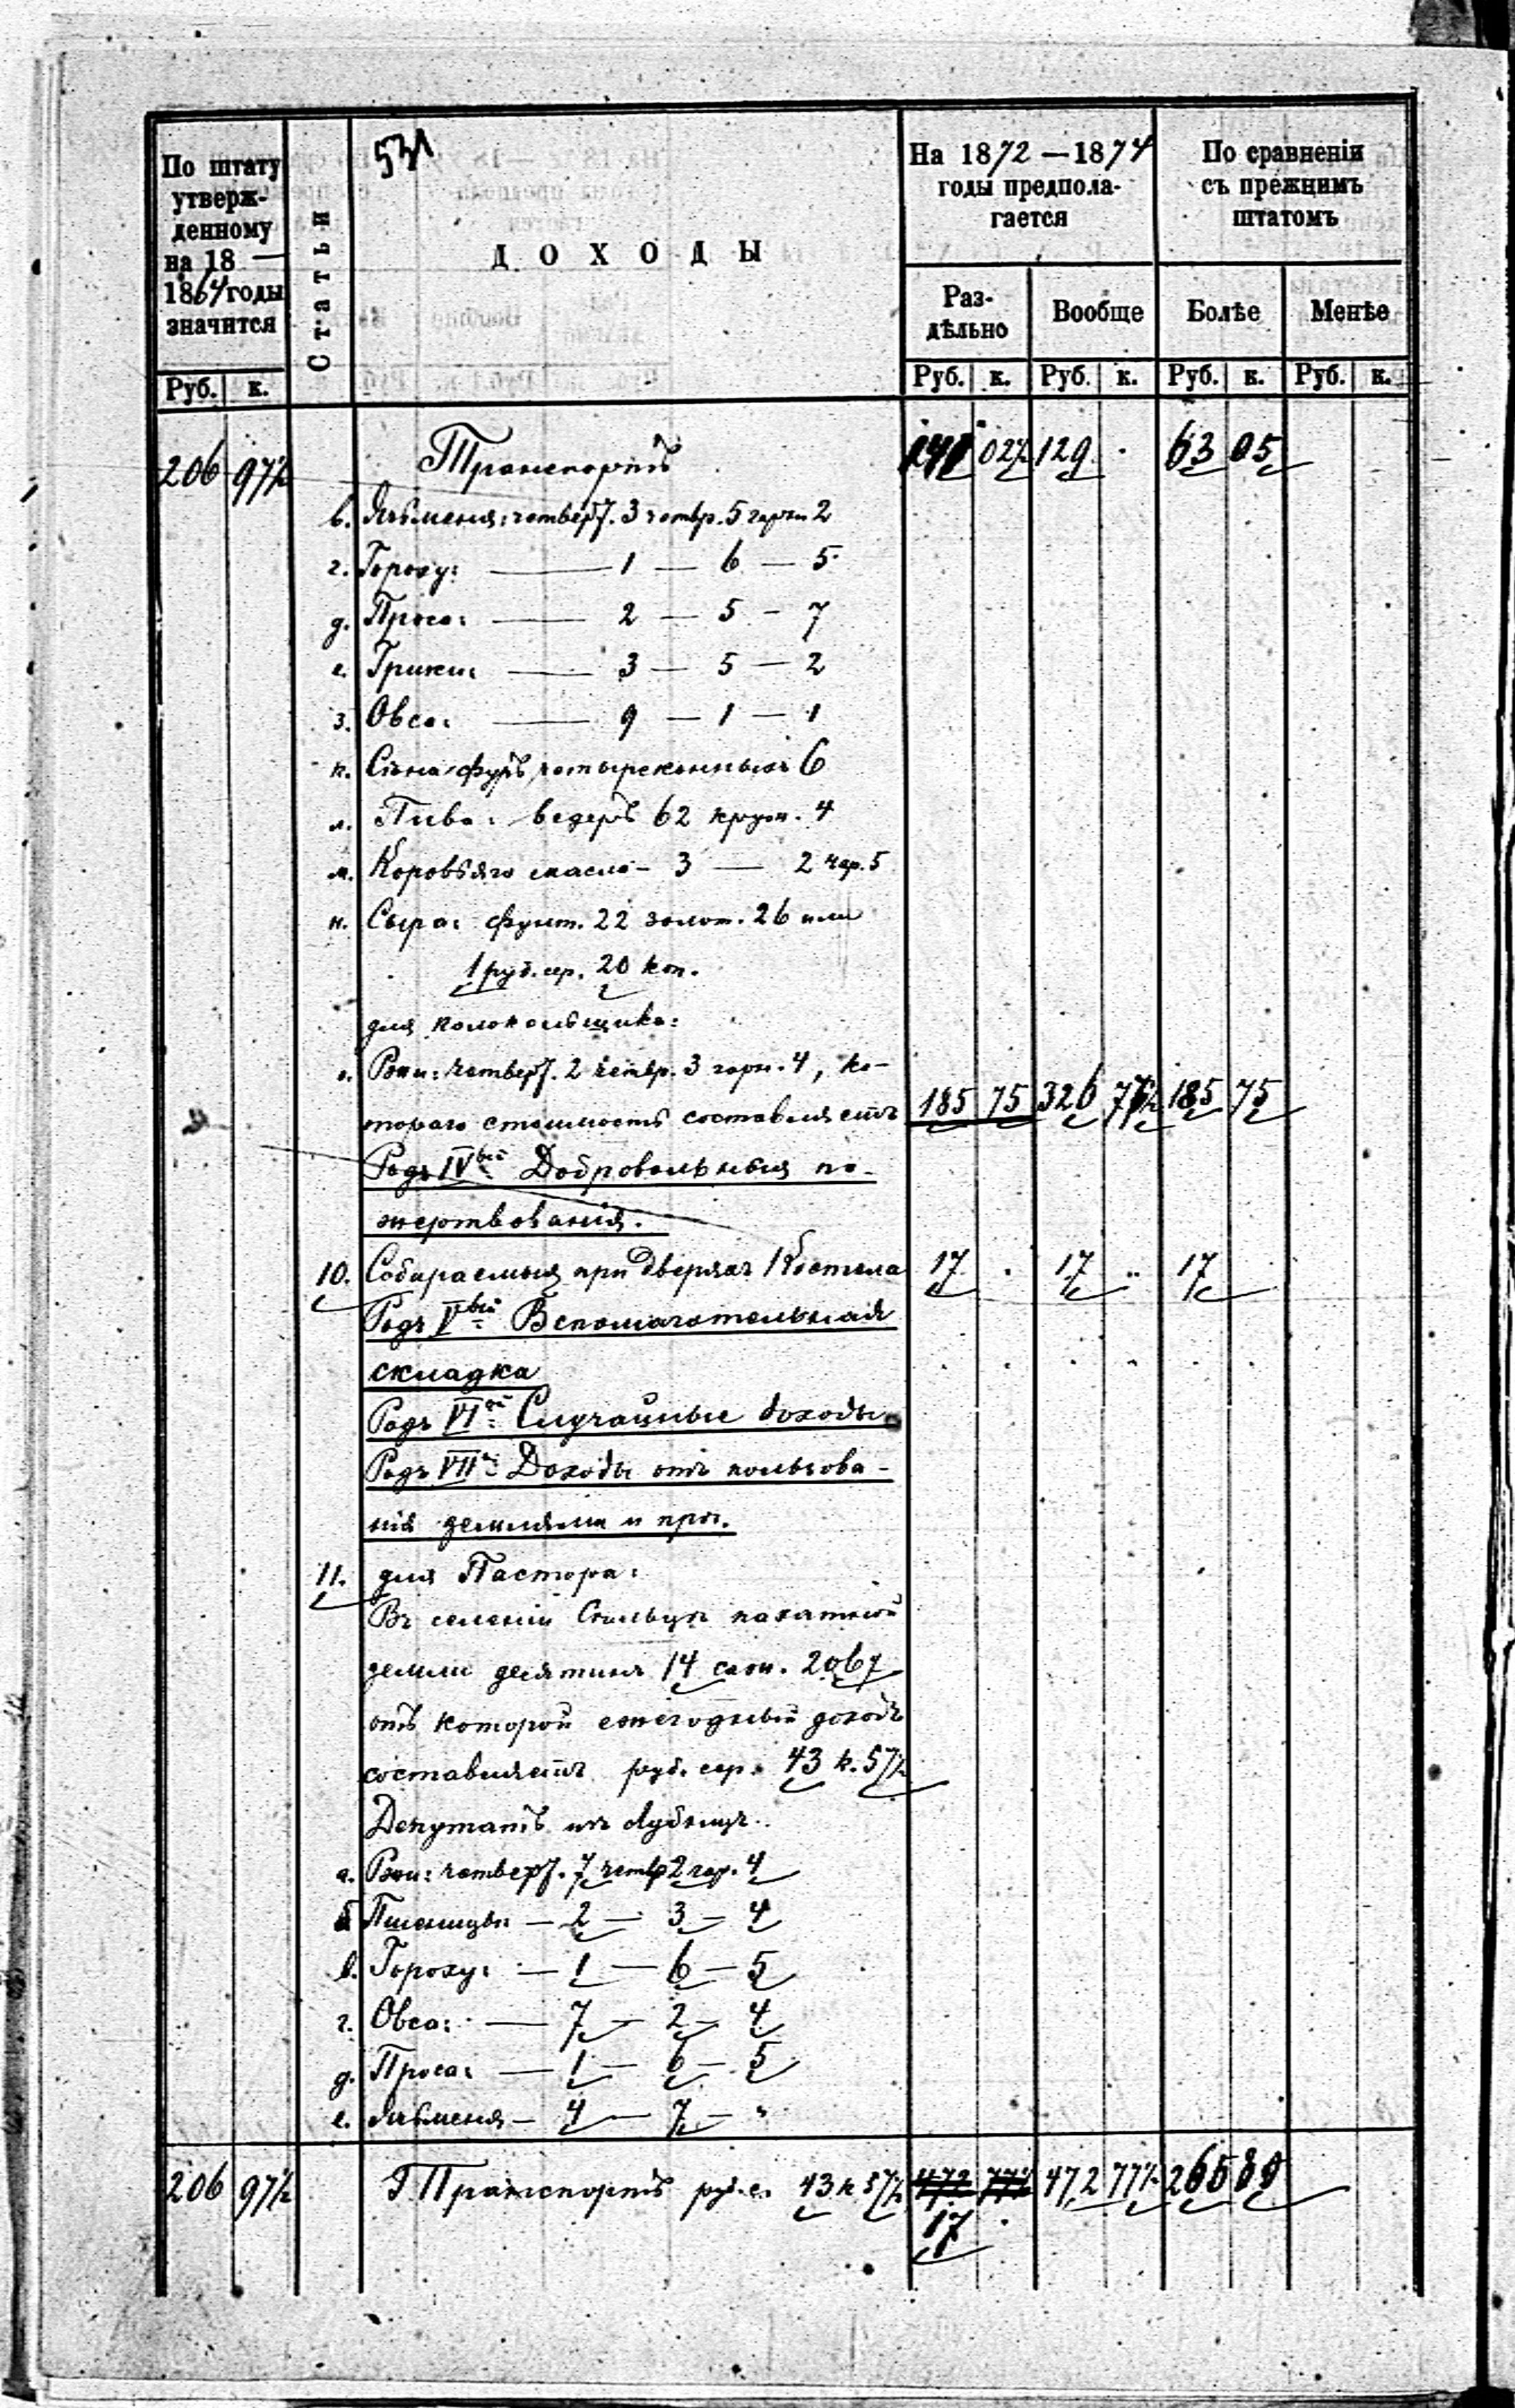 531
По штату
утверж-
денному
на 18 —
1864 годы
значится
Статьи
ДОХОДЫ
На 1872 — 1874
годы предпола-
гается
По сравненіи
съ прежнимъ
штатомъ
Раз-
дѣльно
Вообще
Болѣе
Менѣе
Руб. к. Руб. к. Руб. к. Руб. к. Руб. к.
206 97½ Транспортъ 02½ 129 . 63 05
в. Ячьменя: четверт. 3 четвр. 5 гарн. 2
г. Гороху: — 1 — 6 — 5
д. Проса: — 2 — 5 — 7
е. Грики: — 3 — 5 — 2
з. Овса: — 9 — 1 — 1
к. Сѣна фуръ четыреконныхъ 6
л. Пива: ведеръ 62 круж. 4
м. Коровьяго масла — 3 — 2 чар. 5
н. Сыра: фунт. 22 золот. 26 или
1 руб. сер. 20 коп.
для колокольщика:
о. Ржи: четверт. 2 четвр. 3 гарн. 4, ко-
тораго стоимость составляетъ 185 75 326 77½ 185 75
Родъ IVый Добровольныя по-
жертвованія.
10. Собираемыя при дверяхъ Костела 17 . 17 .. 17
Родъ Vый Вспомагательная
складка
Родъ VIой Случайные доходы
Родъ VIIй Доходы отъ пользова-
нія землями и проч.
11. для Пастора:
Въ селеніи пахатной
земли десятинъ 14 саж. 2067
отъ которой ежегодный доходъ
составляетъ руб. сер. 43 к. 57½
Депутатъ изъ
а. Ржи: четверт. 7 четвр 2 гар. 4
б Пшеницы — 2 — 3 — 4
в. Гороху: — 1 — 6 — 5
г. Овса: — 7 — 2 — 4
д. Проса: — 1 — 6 — 5
е. Ячьменя — 4 — 7 — "
206 97½ Транспортъ руб. с. 43 к 57½ 472 77½ 472 77½ 265 80
17 .